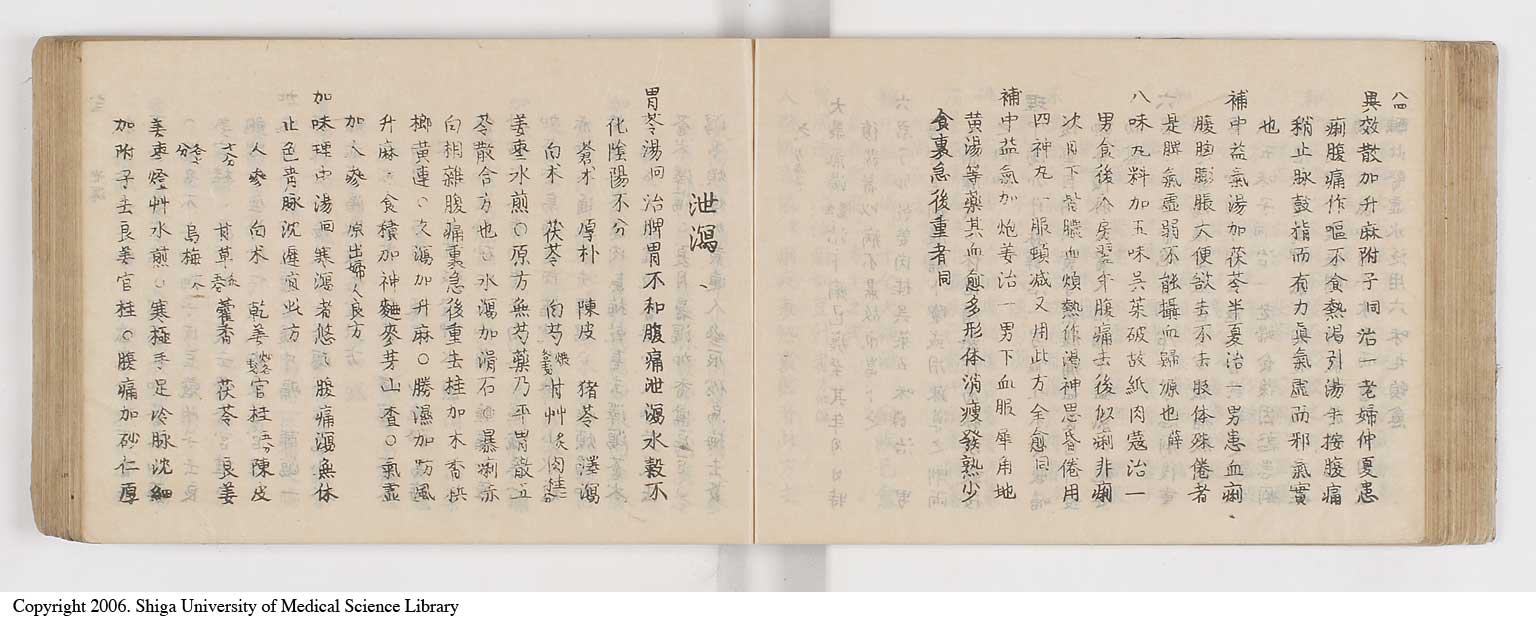 八四
異效散加升麻附子同治一老婦仲夏患
痢腹痛作嘔不食熱渴引湯手按腹痛
稍止脉鼓指而有力眞氣虛而邪氣實
也
補中益氣湯加茯苓半夏治一男患血痢
腹胸膨脹大便欲去不去肢体殊倦者
是脾氣虛弱不能攝血歸源也薛
八味丸料加五味吳茱破故紙肉蔻治一
男食後入房翌年腹痛去後似痢非痢
次日下皆膿血煩熱作渴神思昏倦用
四神丸一服頓減又用此方全愈同
補中益氣加炮姜治一男下血服犀角地
黃湯等藥其血愈多形体消瘦發熱少
食裏急後重者同
泄瀉
胃苓湯回治脾胃不和腹痛泄瀉水穀不
化陰陽不分
蒼朮 厚朴 陳皮 猪苓 澤瀉
白朮 茯苓 白芍 甘艸炙肉桂
姜棗水煎○原方無芍藥乃平胃散五
苓散合方也○水瀉加滑石○暴痢赤
白相雜腹痛裏急後重去桂加木香梹
榔黃連○久瀉加升麻○勝濕加防風
升麻○食積加神麯麥芽山査○氣虛
加人參 原出婦人良方
加味理中湯回寒瀉者悠々腹痛瀉無休
止色青脉沈遲宜此方
人參 白朮 乾姜 官桂 陳皮
甘草 藿香 茯苓 良姜
烏梅
姜棗燈艸水煎○寒極手足冷脉沈細
加附子去良姜官桂○腹痛加砂仁厚